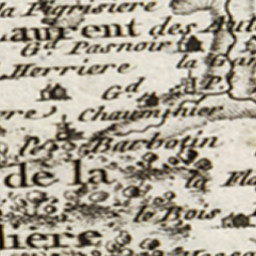 la Pigrisiere
Laurent des Aut
Gd Pasnoir
Herriere
la Gan
Gd
Pt
Chaumihier
les Barbotin
de la
la Fla
le Bois
liere